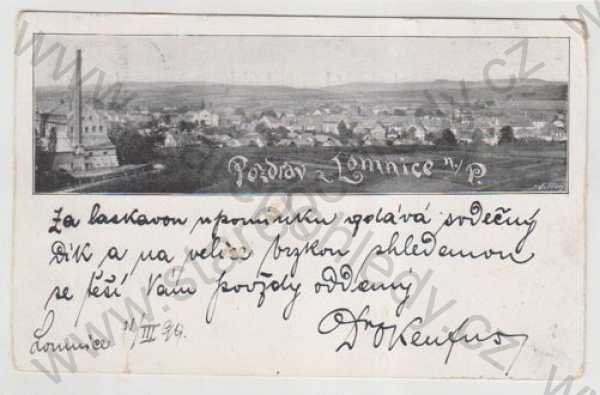 Pozdrav z Lomnice n/P.
Za laskavou upomínku vzdává srdečný
dík a na velice brzkou shledanou
se těší Vám povždy oddaný
Lomnice 11/III 99.